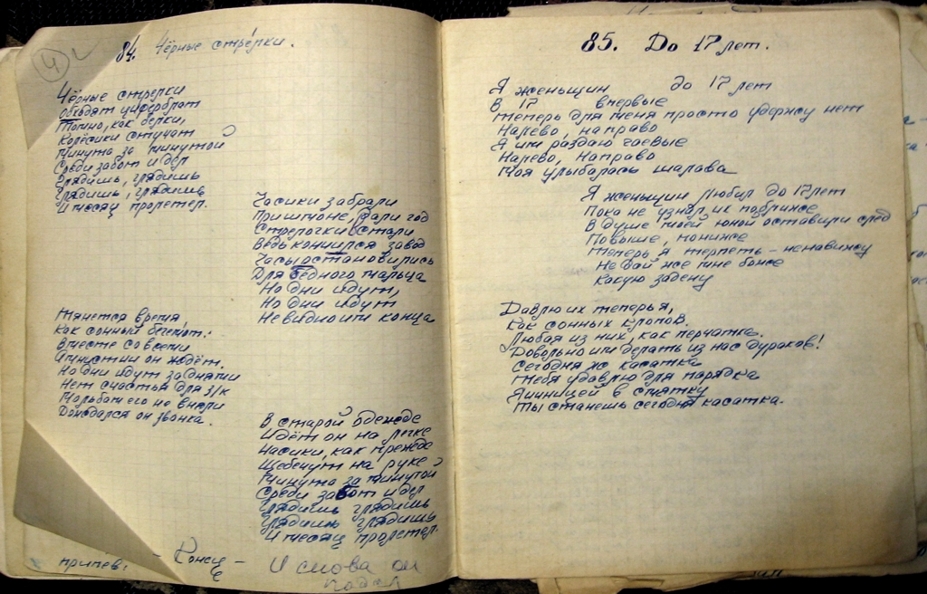 4
84. Чёрные стрелки.
Чёрные стрелки
Обходят циферблат
Точно, как белки,
Колёсики стучат
Минута за минутой
Среди забот и дел
Глядишь, глядишь
Глядишь, глядишь
И месяц пролетел.
Часики забрали
Пришли мне, дали год
Стрелочки встали
Ведь кончился завод
Часы остановились
Для бедного мальца
Но дни идут,
Но дни идут
Не видно им конца
Тянется время,
Как сонный бегемот.
Вместе со всеми
Амнистии он ждёт.
Но дни идут за днями
Нет счастья для з/к
Мольбам его не вняли
Дождался он звонка.
В старой одежде
Идёт он на легке
Часики, как прежде
Щебечут на руке
Минута за минутой
Среди забот и дел
Глядишь глядишь
Глядишь глядишь
И месяц пролетел.
припев: - Конец - И снова он
85. До 17 лет.
Я женщин до 17 лет
В 17 впервые
Теперь для меня просто удержу нет
Налево, направо
Я им раздаю чаевые
Налево, направо
Моя улыбалась шалава
Я женщин любил до 17 лет
Пока не узнал их поближе
В душе моей юной оставили след
Повыше, пониже
Теперь я терпеть - ненавижу
Не дай же мне боже
Какую задену
Давлю их теперь я,
Как сонных клопов.
Любая из них, как перчатка.
Довольно им делать из нас дураков!
Сегодня ж касатка
Тебя удавлю для порядка
Яичницей в смятку
Ты станешь сегодня касатка.